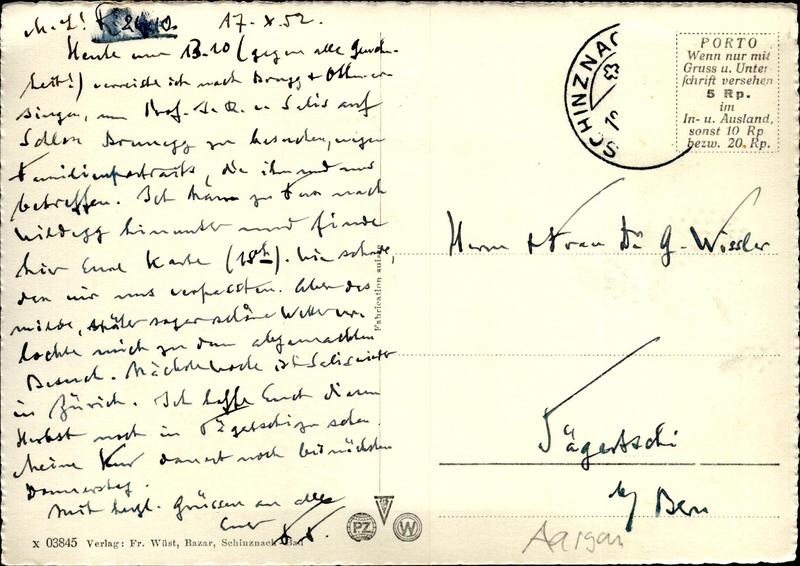 M. L! 17. X. 52.
Heute um 13.10 (gegen alle Gewohn-
heit!) verreiste ich nach Brugg & Othmar-
singen, um Prof. J. R. v. Salis auf
Schloss Brunegg zu besuchen, wegen
Familienportraits, die ihn und uns
betreffen. Ich kam zu Fuss nach
Wildegg hinunter und finde
hier Eure Karte (18h). Wie schade,
dass wir uns verpassten. Aber das
milde, später sogar schöne Wetter ver-
lockte mich zu dem abgemachten
Besuch. Nächste Woche ist Salis wieder
in Zürich. Ich hoffe Euch diesen
Herbst noch in Tägertschi zu sehen.
Meine Kur dauert noch bis nächsten
Donnerstag.
Mit herzl. Grüssen an alle
Euer
x 03845 Verlag: Fr. Wüst, Bazar, Schinznach-Bad
Fabrication suisse
PZ
W
SCHINZNAC
PORTO
Wenn nur mit
Gruss u. Unter
schrift versehen
5 Rp.
im
In- u. Ausland,
sonst 10 Rp
bezw. 20 Rp.
Herrn & Frau Dr G. Wissler
Tägertschi
b/ Bern
Aargau